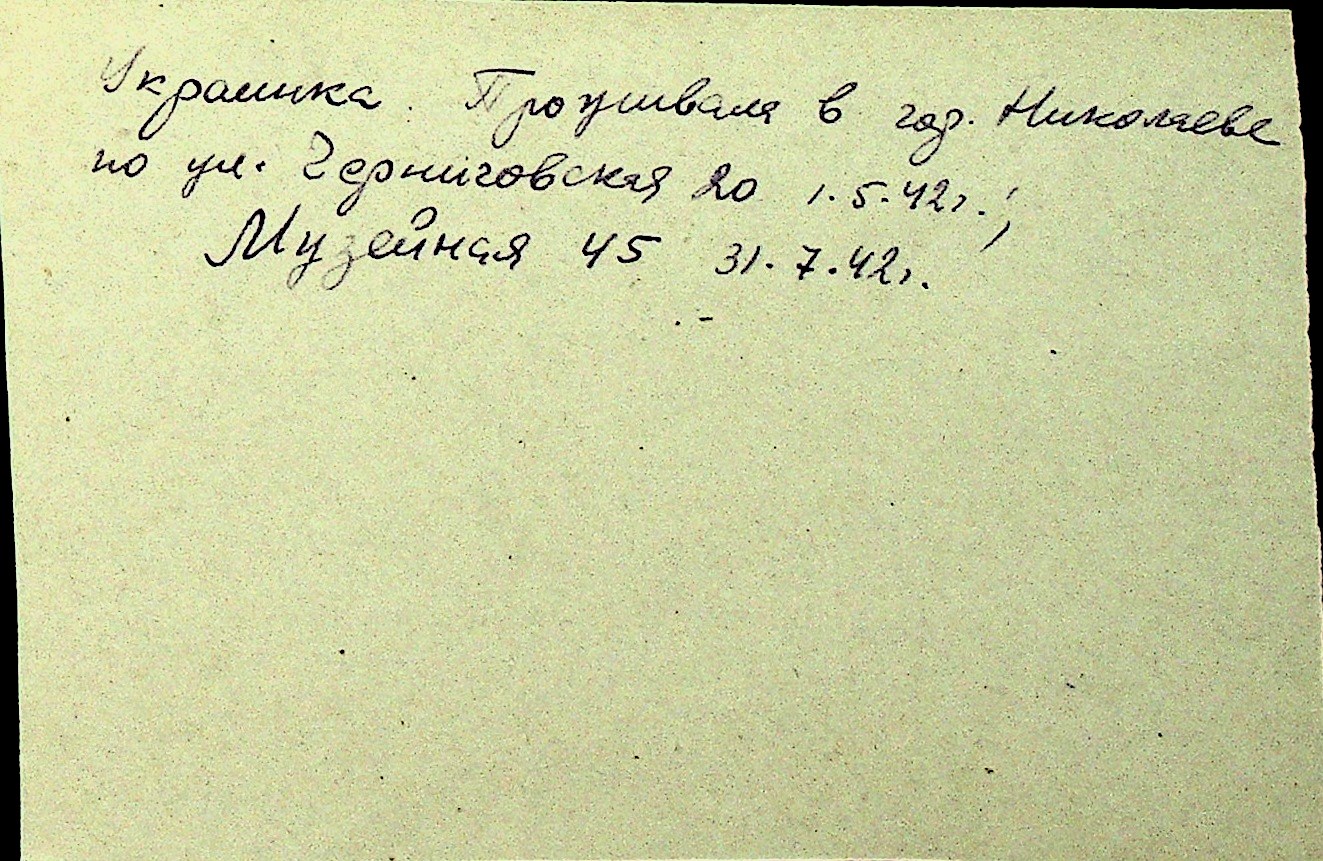 Украинка. Проживала в гор. Николаеве
по ул. Черниговская 20 1.5.42г.;
Музейная 45 31.7.42г.